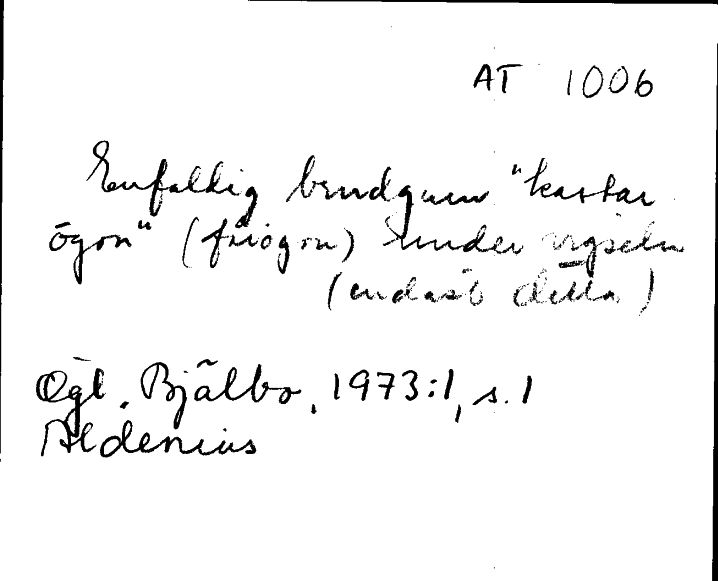 AT 1006
Enfaldig brudgum "kastar
ögon" (fårögon) under vigseln
(endast detta)
Ögl. Bjälbo, 1973:1, s. 1
Aldenius